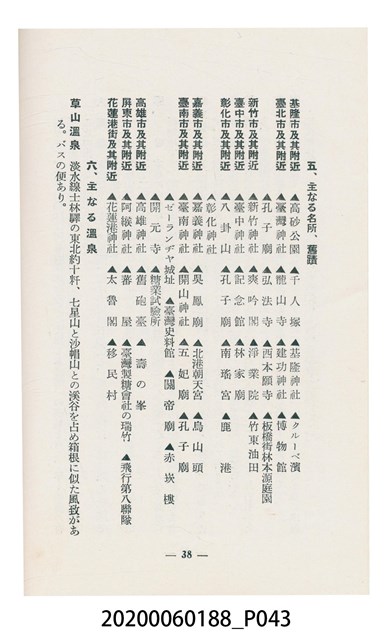 五、主なる名所、舊蹟
基隆市及其附近 ▲高砂公園 ▲千人塚 ▲基隆神社 ▲クルーベ濱
臺北市及其附近 ▲臺灣神社 ▲龍山寺 ▲建功神社 ▲博物館
▲孔子廟 ▲弘法寺 ▲西本願寺 ▲板橋街林本源庭園
新竹市及其附近 ▲新竹神社 ▲爽吟閣 ▲淨業院 ▲竹東油田
臺中市及其附近 ▲臺中神社 ▲記念館 ▲林家廟
彰化市及其附近 ▲八卦山 ▲孔子廟 ▲南瑤宮 ▲鹿港
▲彰化神社
嘉義市及其附近 ▲嘉義神社 ▲吳鳳廟 ▲北港朝天宮 ▲烏山頭
臺南市及其附近 ▲臺南神社 ▲開山神社 ▲五妃廟 ▲孔子廟
▲ゼーランヂヤ城址 ▲臺灣史料館 ▲關帝廟 ▲赤崁樓
▲開元寺 ▲糖業試驗所
高雄市及其附近 ▲高雄神社 ▲舊砲臺 ▲壽の峯
屏東市及其附近 ▲阿緱神社 ▲蕃屋 ▲臺灣製糖會社の瑞竹 ▲飛行第八聯隊
花蓮港街及其附近 ▲花蓮港神社 ▲太魯閣 ▲移民村
六、主なる溫泉
草山溫泉 淡水線士林驛の東北約十粁、七星山と沙帽山との溪谷を占め箱根に似た風致があ
る。バスの便あり。
— 38 —
20200060188_P043